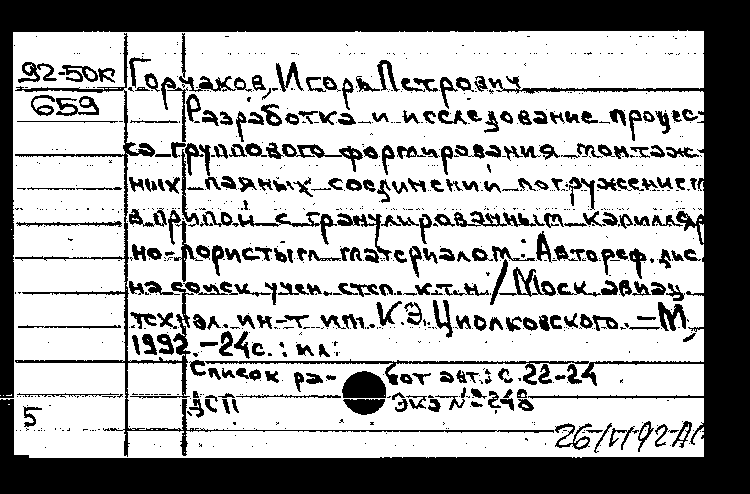 92-50к Горчаков, Игорь Петрович
659 Разработка и исследование процес-
са группового формирования монтаж-
ных паяных соединений погружением
в припой с гранулированным капилляр
но-пористым материалом: Автореф. дис.
на соиск. учен. степ. к.т.н. / Моск. авиац.
технол. ин-т им. К.Э. Циолковского. - М.,
1992. - 24с. : ил.
Список ра- бот авт.: с. 22-24
5 ДСП Экз № 248
26/VI 92